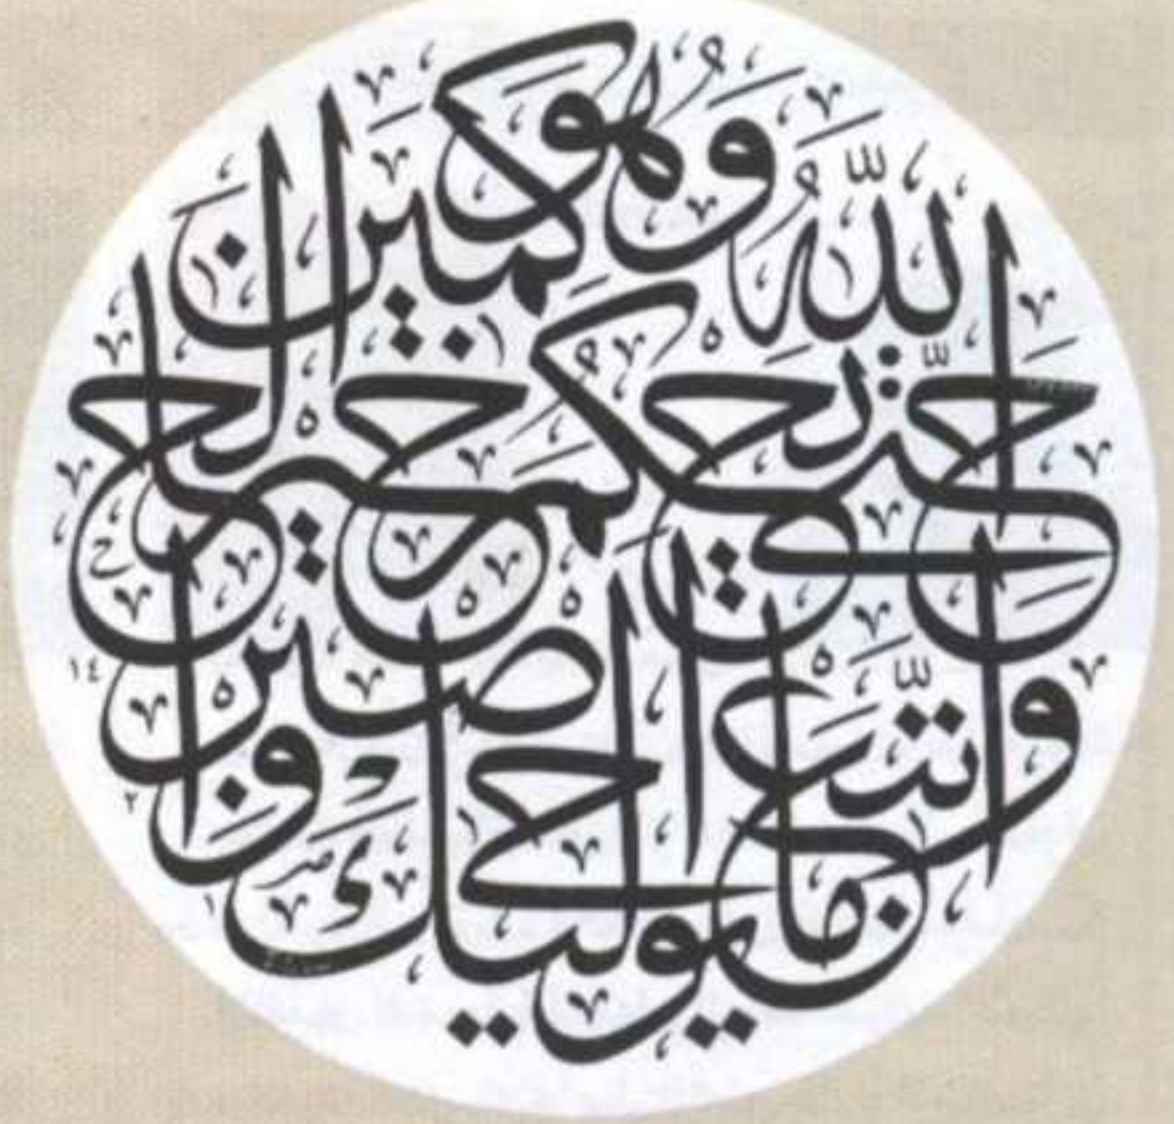 وَاتَّبِعْ مَا يُوحَى إِلَيْكَ وَاصْبِرْ
حَتَّى يَحْكُمَ اللَّهُ وَهُوَ خَيْرُ الْحَاكِمِينَ
١٤٢١